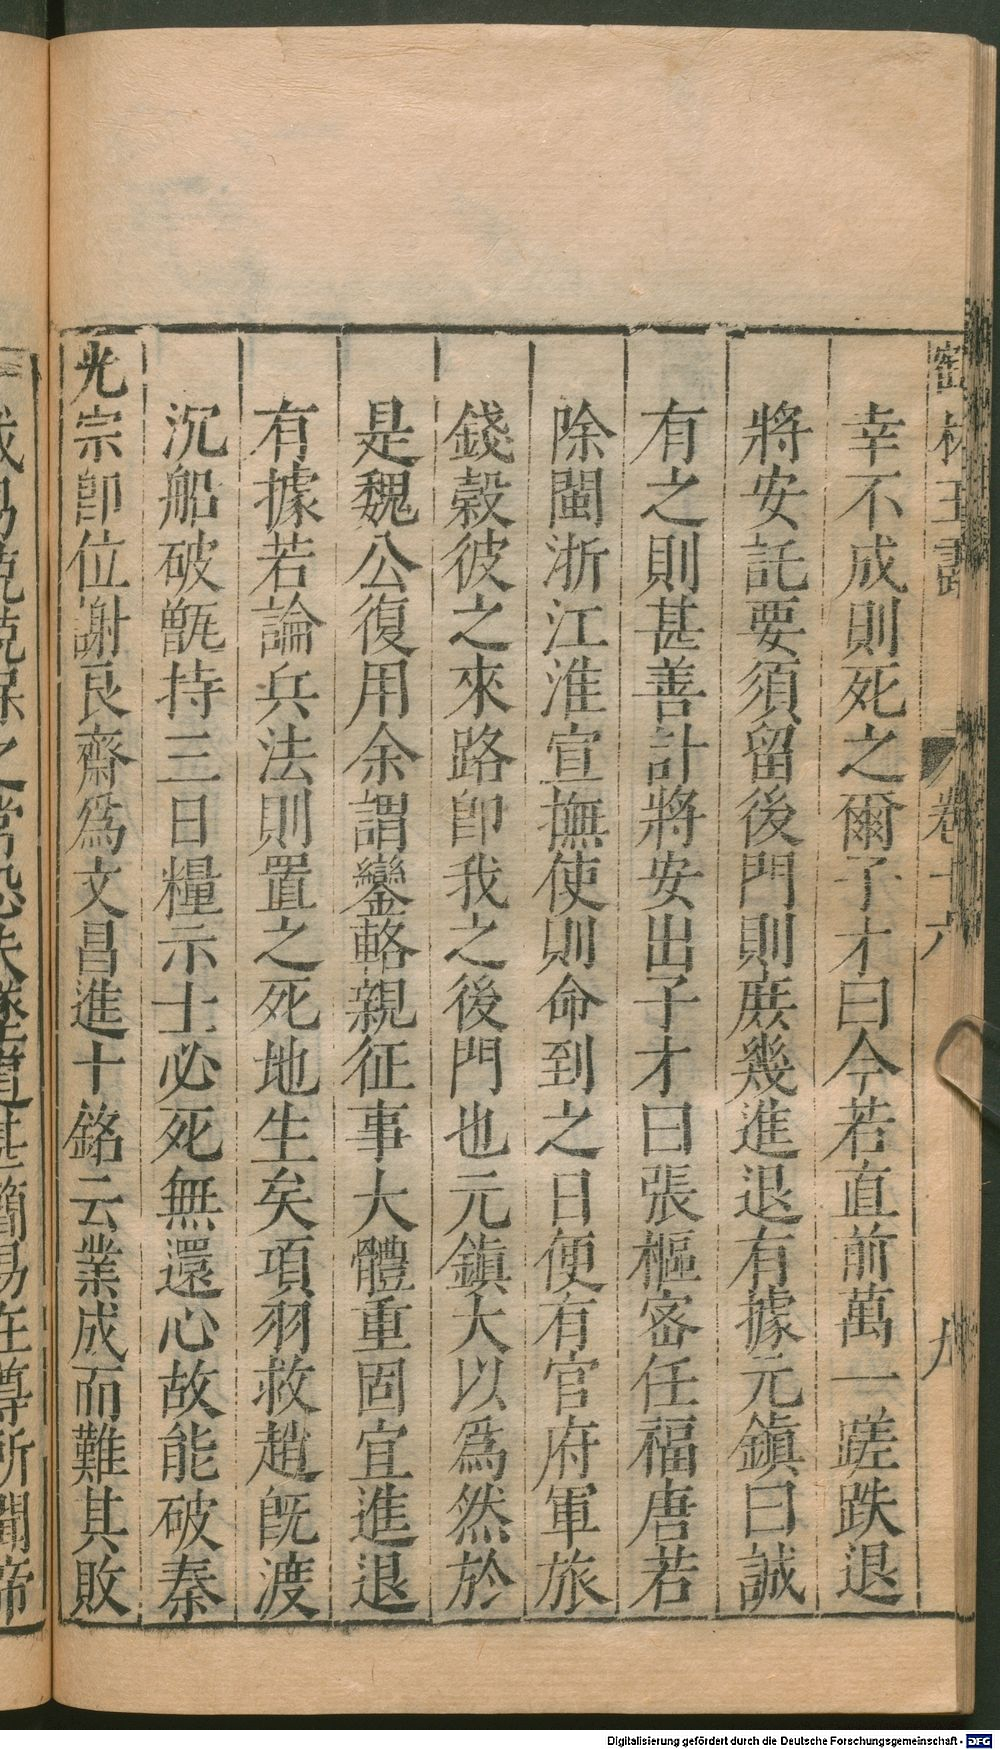 幸不成則死之爾子才曰今若直前萬一蹉跌退
將安託要須留後門則庻幾進退有據元鎭曰誠
有之則甚善計將安出子才曰張樞宻任福唐若
除閩浙江淮宣撫使則命到之日便有官府軍旅
錢糓彼之來路卽我之後門也元鎭大以爲然於
是魏公復用余謂鑾輅親征事大體重固宜進退
有據若論兵法則置之死地生矣項羽救趙旣渡
沉船破甑持三日糧示士必死無還心故能破秦
光宗卽位謝良齋爲文昌進十銘云業成而難其敗
之常恐失墜寔甚簡易在尊所聞帝
Digitalisierung gefördert durch die Deutsche Forschungsgemeinschaft - DFG